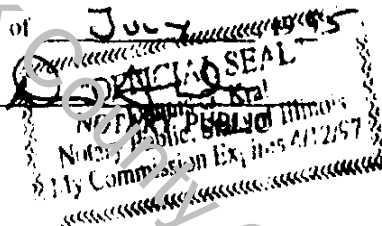 of July 1995
OFFICIAL SEAL
Kral
NOTARY PUBLIC
Notary Public, State of Illinois
My Commission Expires 4/12/97
County